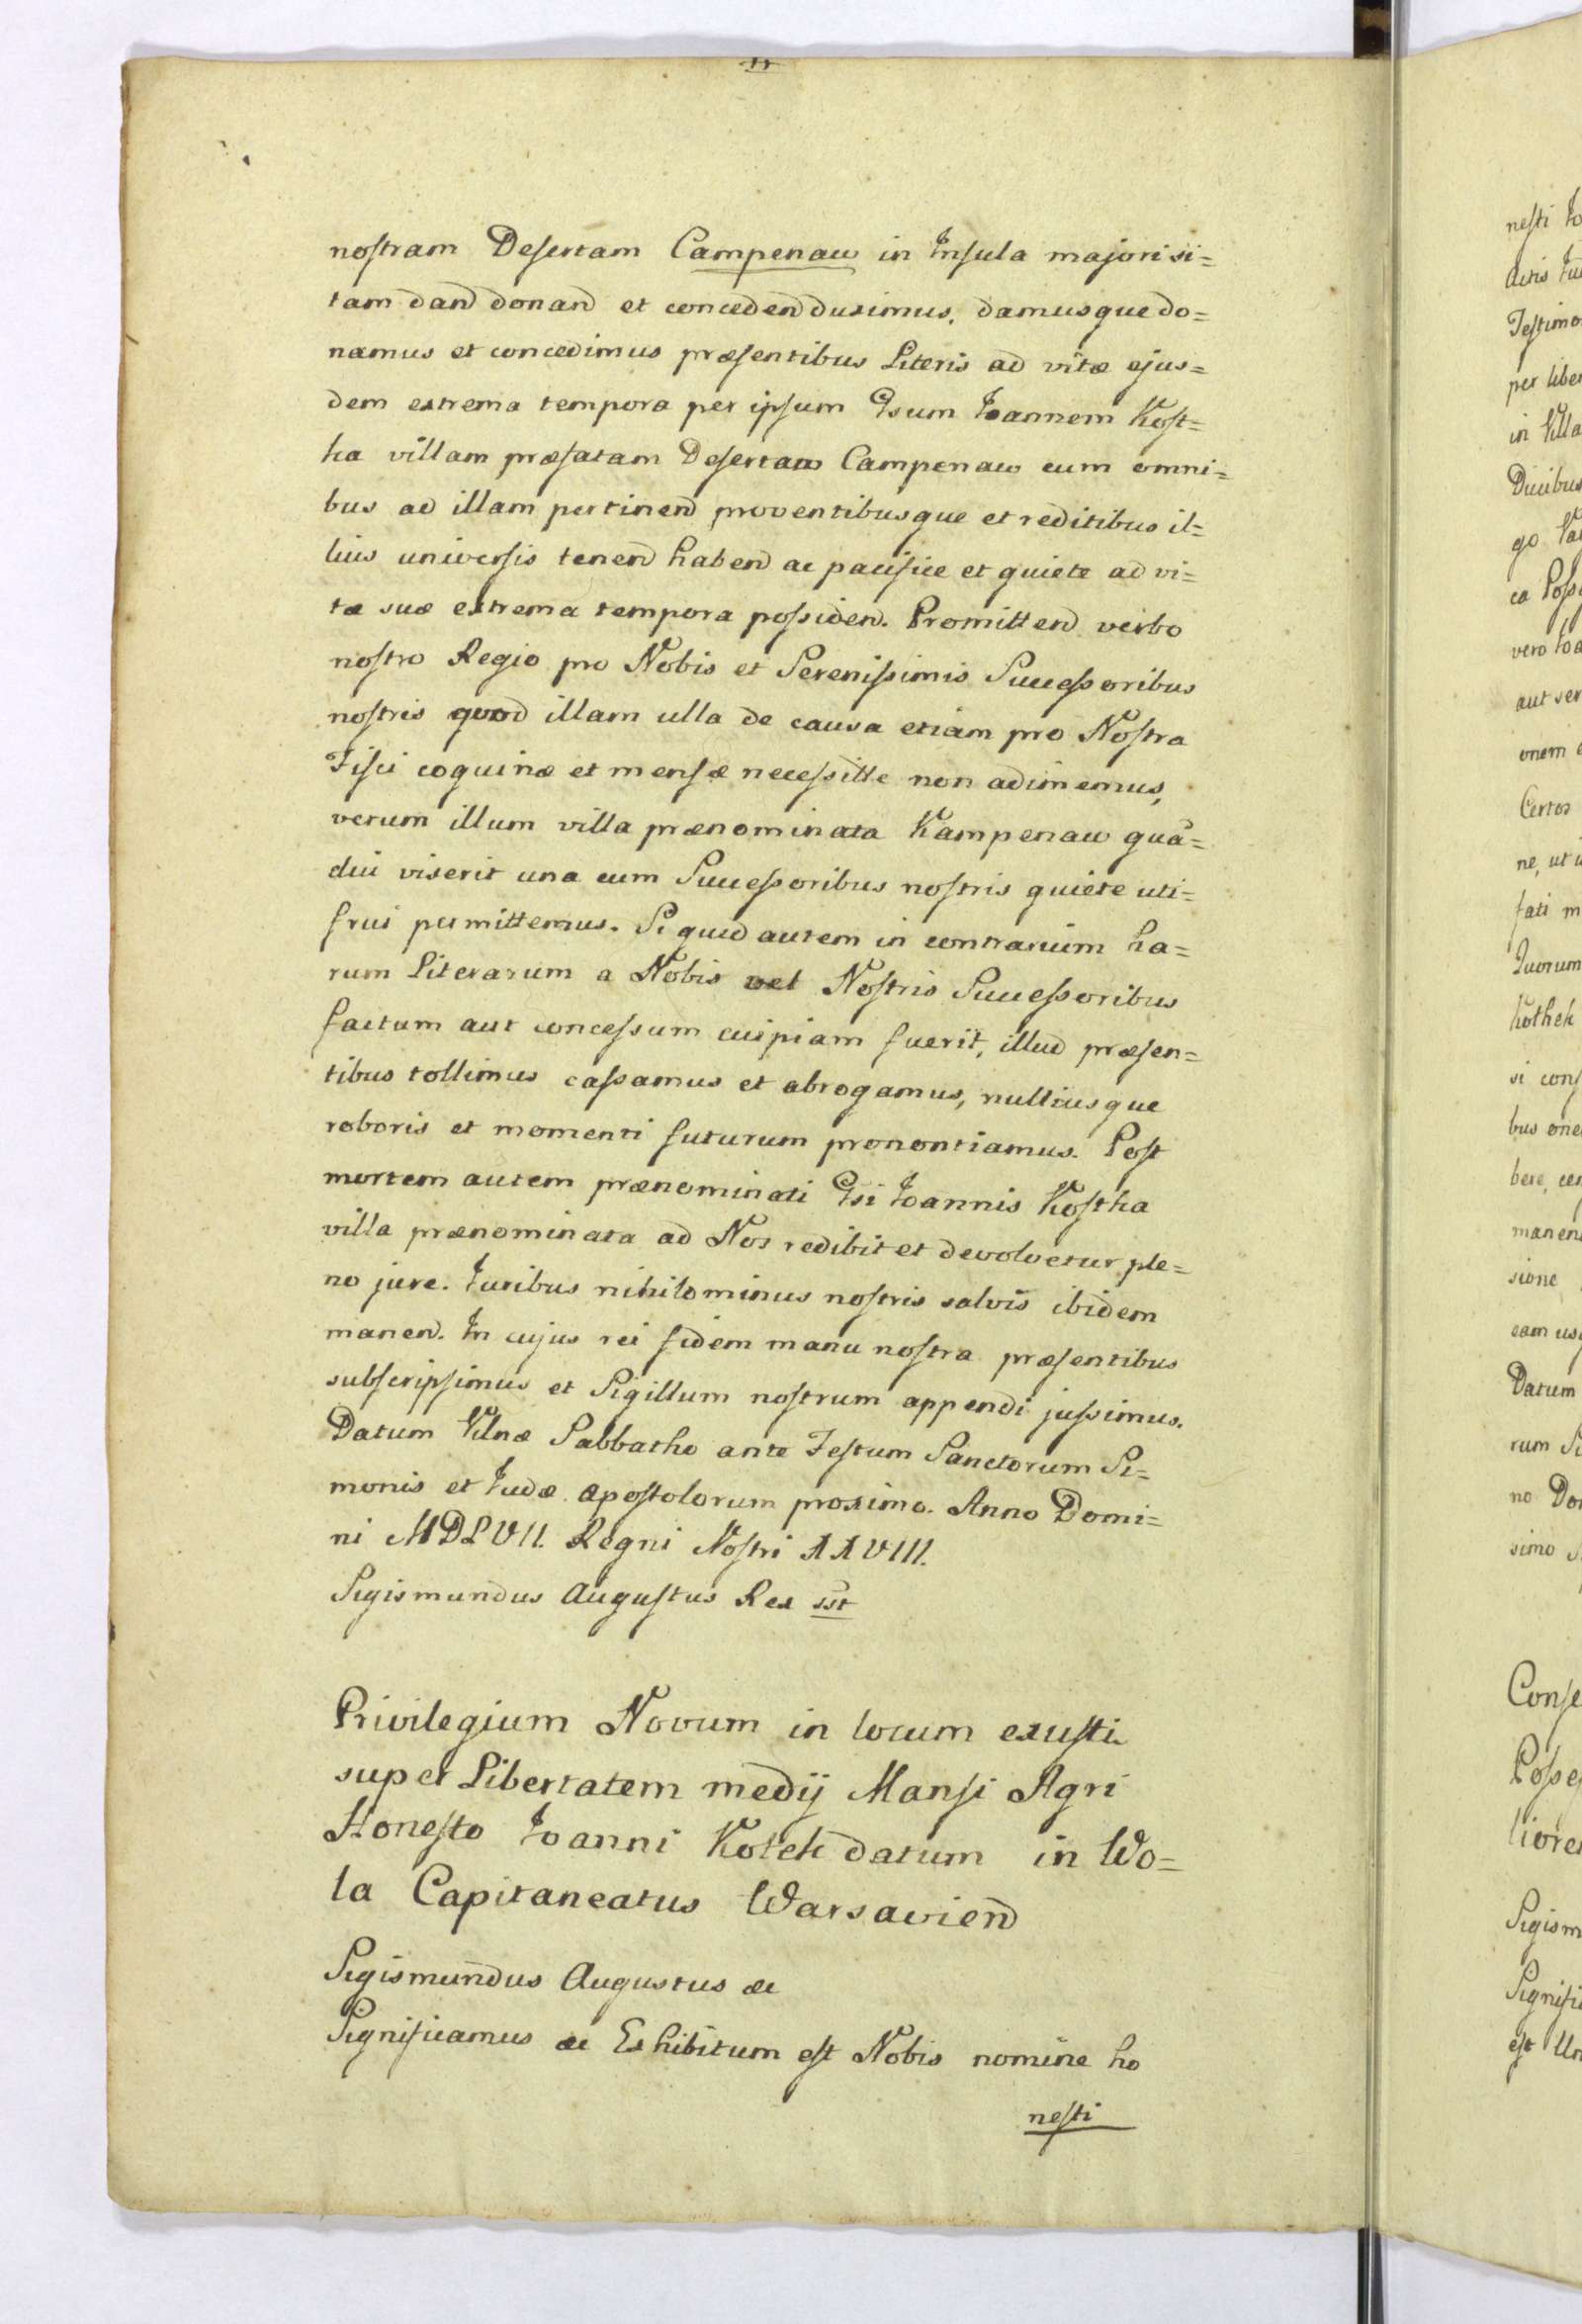 nostram Desertam Campenau in Insula majori si=
tam dand donand et concedend duximus, damusque do=
namus et concedimus præsentibus Literis ad vitæ ejus=
dem extrema tempora per ipsum Gsum Joannem Kost=
ka villam præfatam Desertam Campenau cum omni=
bus ad illam pertinend proventibusque et reditibus il=
lius universis tenend habend ac pacifice et quiete ad vi=
tæ suæ extrema tempora possidend. Promittend verbo
nostro Regio pro Nobis et Serenissimis Successoribus
nostris quod illam ulla de causa etiam pro Nostra
Fisci coquinæ et mensæ necessitte non adimemus,
verum illum villa prænominata Kampenau quã=
diu vixerit una cum Successoribus nostris quiete uti=
frui permittemus. Si quid autem in contrarium ha=
rum Literarum a Nobis vel Nostris Successoribus
factum aut concessum cuipiam fuerit, illud præsen=
tibus tollimus cassamus et abrogamus, nulliusque
roboris et momenti futurum pronontiamus. Post
mortem autem prænominati Gsi Joannis Kostka
villa prænominata ad Nos redibit et devolvetur ple=
no jure. Juribus nihilominus nostris salvis ibidem
manend. In cujus rei fidem manu nostra præsentibus
subscripsimus et Sigillum nostrum appendi jussimus.
Datum Vilnæ Sabbatho ante Festum Sanctorum Si=
monis et Judæ Apostolorum proximo. Anno Domi=
ni MDLVII. Regni Nostri XXVIII.
Sigismundus Augustus Rex sst
Privilegium Novum in locum exusti
super Libertatem medij Mansi Agri
Honesto Joanni Kotek datum in Wo=
la Capitaneatus Warsaviend
Sigismundus Augustus &c
Significamus &c Exhibitum est Nobis nomine ho
nesti